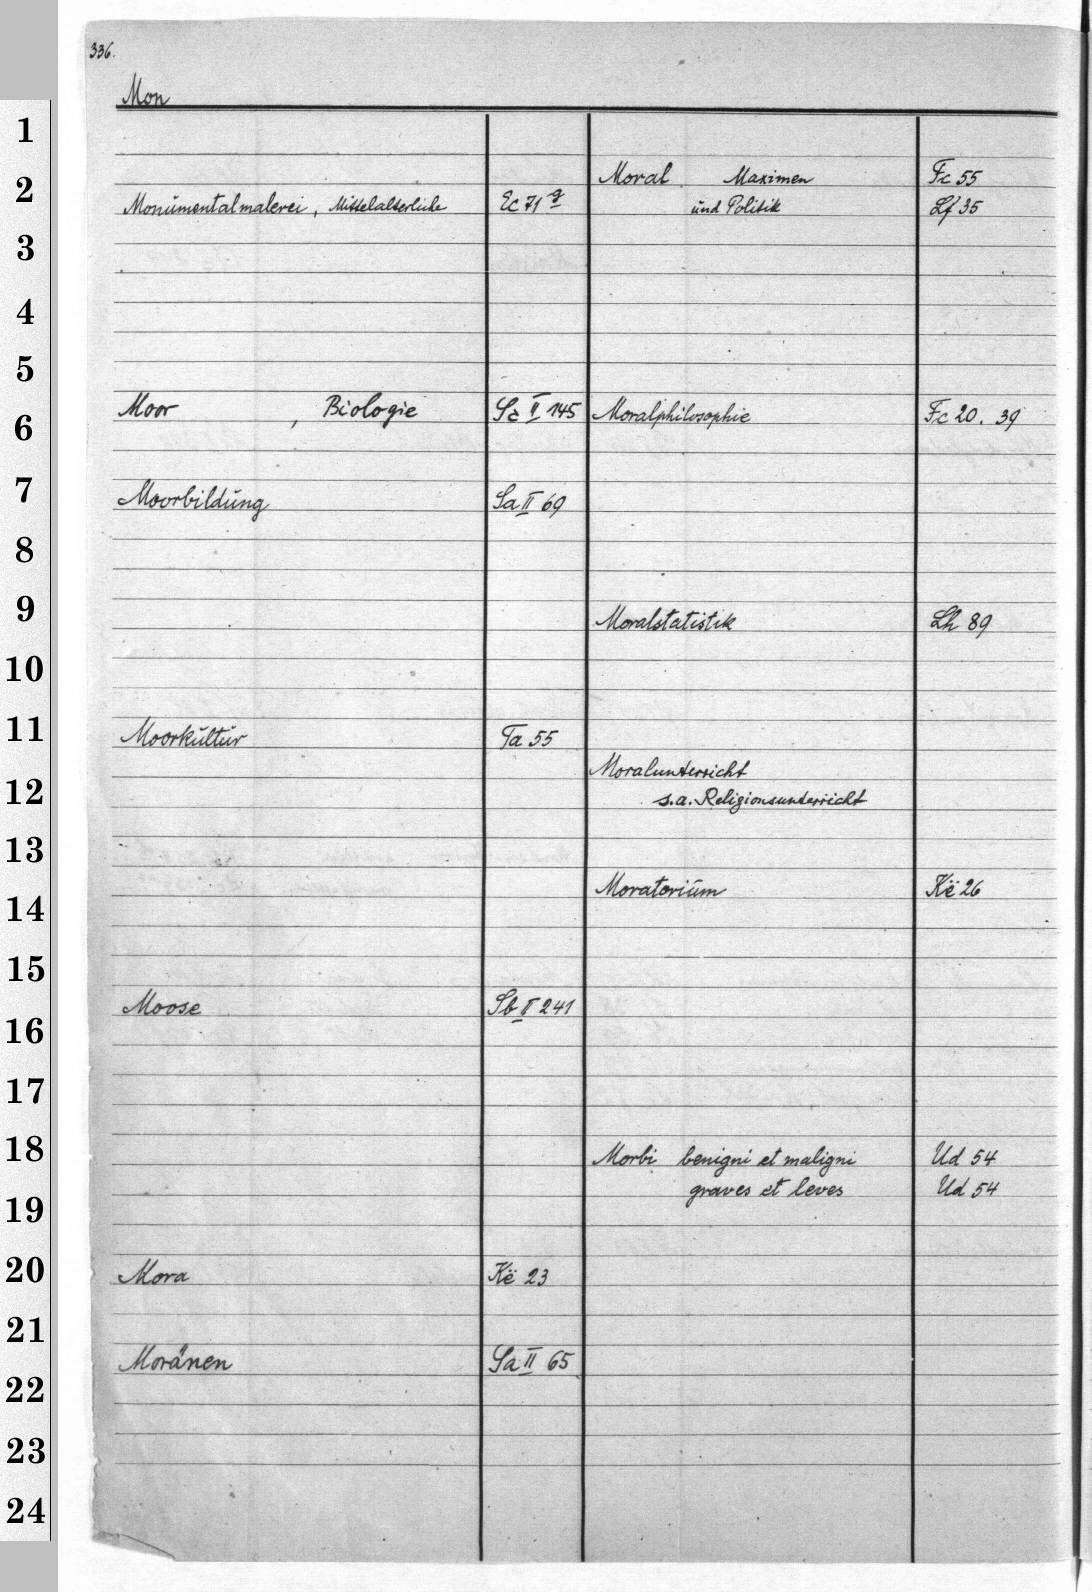 336.
Mon
Monumentalmalerei, Mittelalterliche Ec 71 g
Moor , Biologie Sa II 145
Moorbildung Sa II 69
Moorkultur Ta 55
Moose Sb II 241
Mora Kë 23
Moränen Sa II 65
Moral Maximen Fc 55
und Politik Lf 35
Moralphilosophie Fc 20. 39
Moralstatistik Lh 89
Moralunterricht
s.a. Religionsunterricht
Moratorium Kë 26
Morbi benigni et maligni Ud 54
graves et leves Ud 54
1
2
3
4
5
6
7
8
9
10
11
12
13
14
15
16
17
18
19
20
21
22
23
24